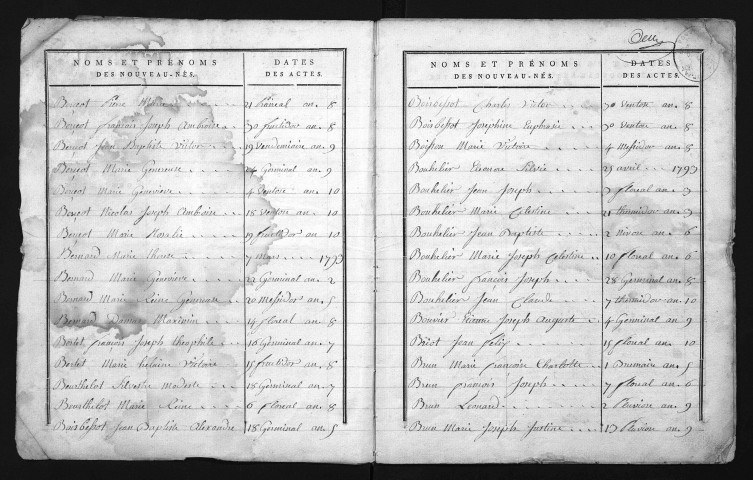 NOMS ET PRÉNOMS
DES NOUVEAU-NÉS.
DATES
DES ACTES.
Bouçot Marie 21 floréal an. 8
Bouçot françois Joseph Ambroise 30 fructidor an. 8
Bouçot Jean Baptiste Victor 19 Vendemiaire an. 9
Bouçot Marie Genereuse Germinal an. 9
Bouçot Marie Genevieve 4 Ventose an. 10
Bouçot Nicolas Joseph Ambroise 15 Ventose an. 10
Bouçot Marie Rosalie 19 fructidor an. 10
Bernard Marie therese 7 Mars 1793
Bernard Marie Genevieve 22 Germinal an. 2
Bernard Marie Reine Genereuse 20 Messidor an. 5
Bernard Maximin 14 floreal an. 8
Bertet françois Joseph théophile 16 Germinal an. 7
Bertet Marie Victoire 15 fructidor an. 8
Bourthelot Silvestre Modeste 18 Germinal an. 7
Bourthelot Marie Reine 6 floreal an. 8
Boisbessot Jean Baptiste Alexandre 18 Germinal an. 5
NOMS ET PRÉNOMS
DES NOUVEAU-NÉS.
DATES
DES ACTES.
Boisbessot Charles Victor 30 Ventose an. 8
Boisbessot Josephine Euphrasie 30 Ventose an. 8
Boisson Marie Victoire 4 Messidor an. 8
Bouhelier Eleonore Silvie 29 avril 1793
Bouhelier Jean Joseph 3 floreal an. 3
Bouhelier Marie Celestine 21 thermidor an. 3
Bouhelier Jean Baptiste 2 Nivose an. 6
Bouhelier Marie Joseph Celestine 10 floreal an. 6
Bouhelier françois Joseph 28 Germinal an. 8
Bouhelier Jean Claude 7 thermidor an. 10
Bouvier Etienne Joseph Auguste 4 Germinal an. 9
Briot Jean felix 15 floreal an. 10
Brun Marie françoise Charlotte 1 Brumaire an. 5
Brun françois Joseph 7 floreal an. 6
Brun Leonard 2 Pluviose an. 9
Brun Marie Joseph Justine 13 Pluviose an. 9